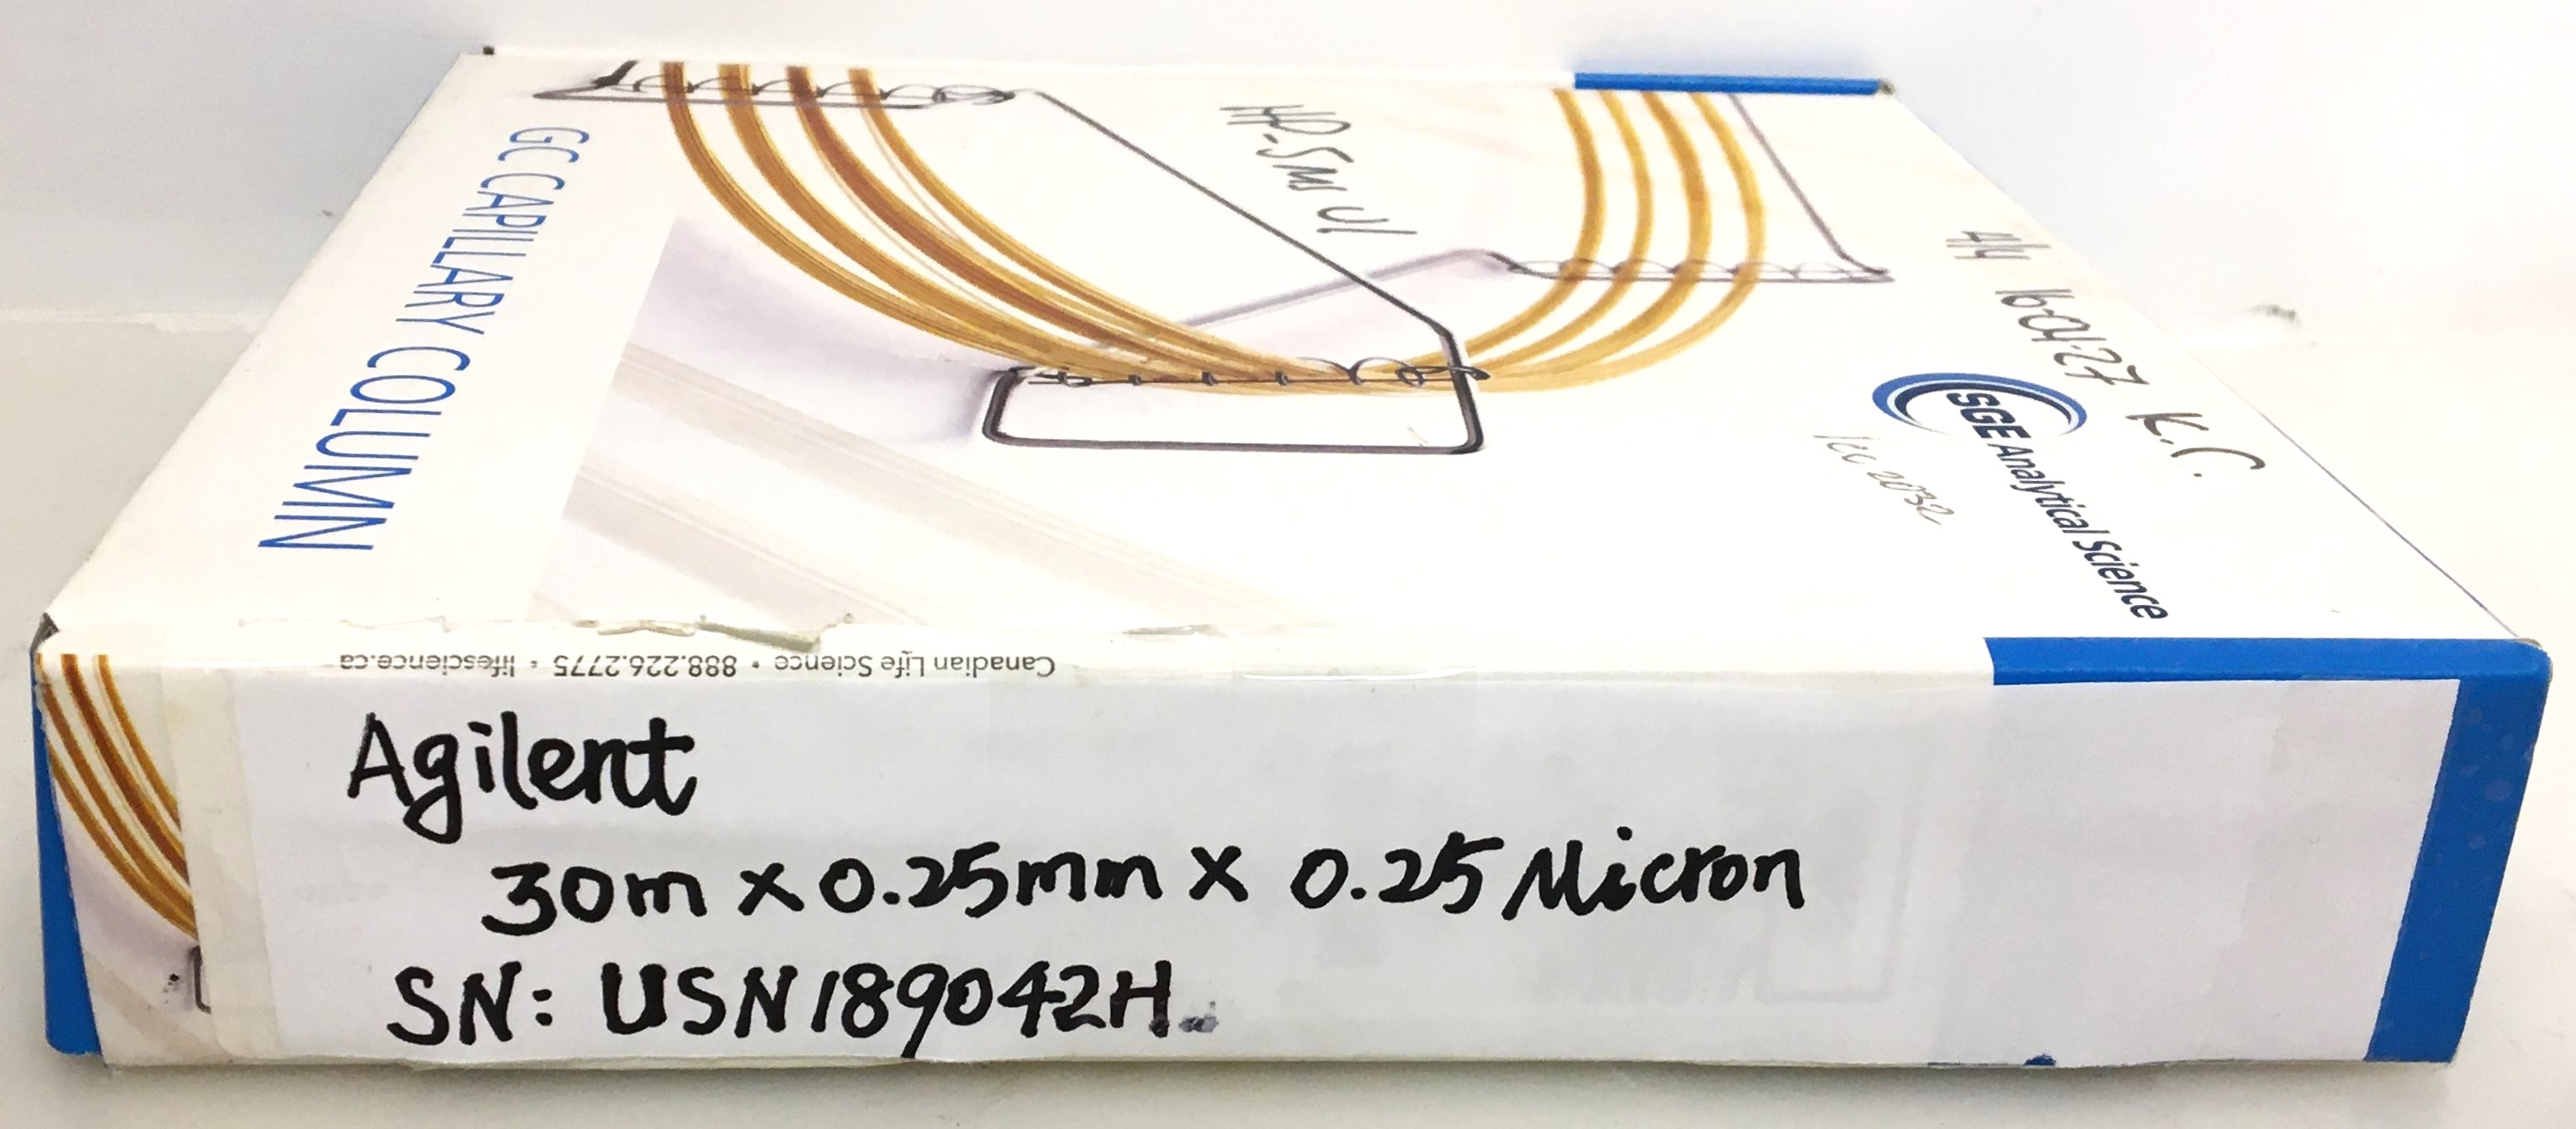 GC CAPILLARY COLUMN
HP-5ms UI
16-04-27 K.C.
SGE Analytical Science
Canadian Life Science • 888.226.2775 • lifescience.ca
Agilent
30m x 0.25mm x 0.25 Micron
SN: USN189042H